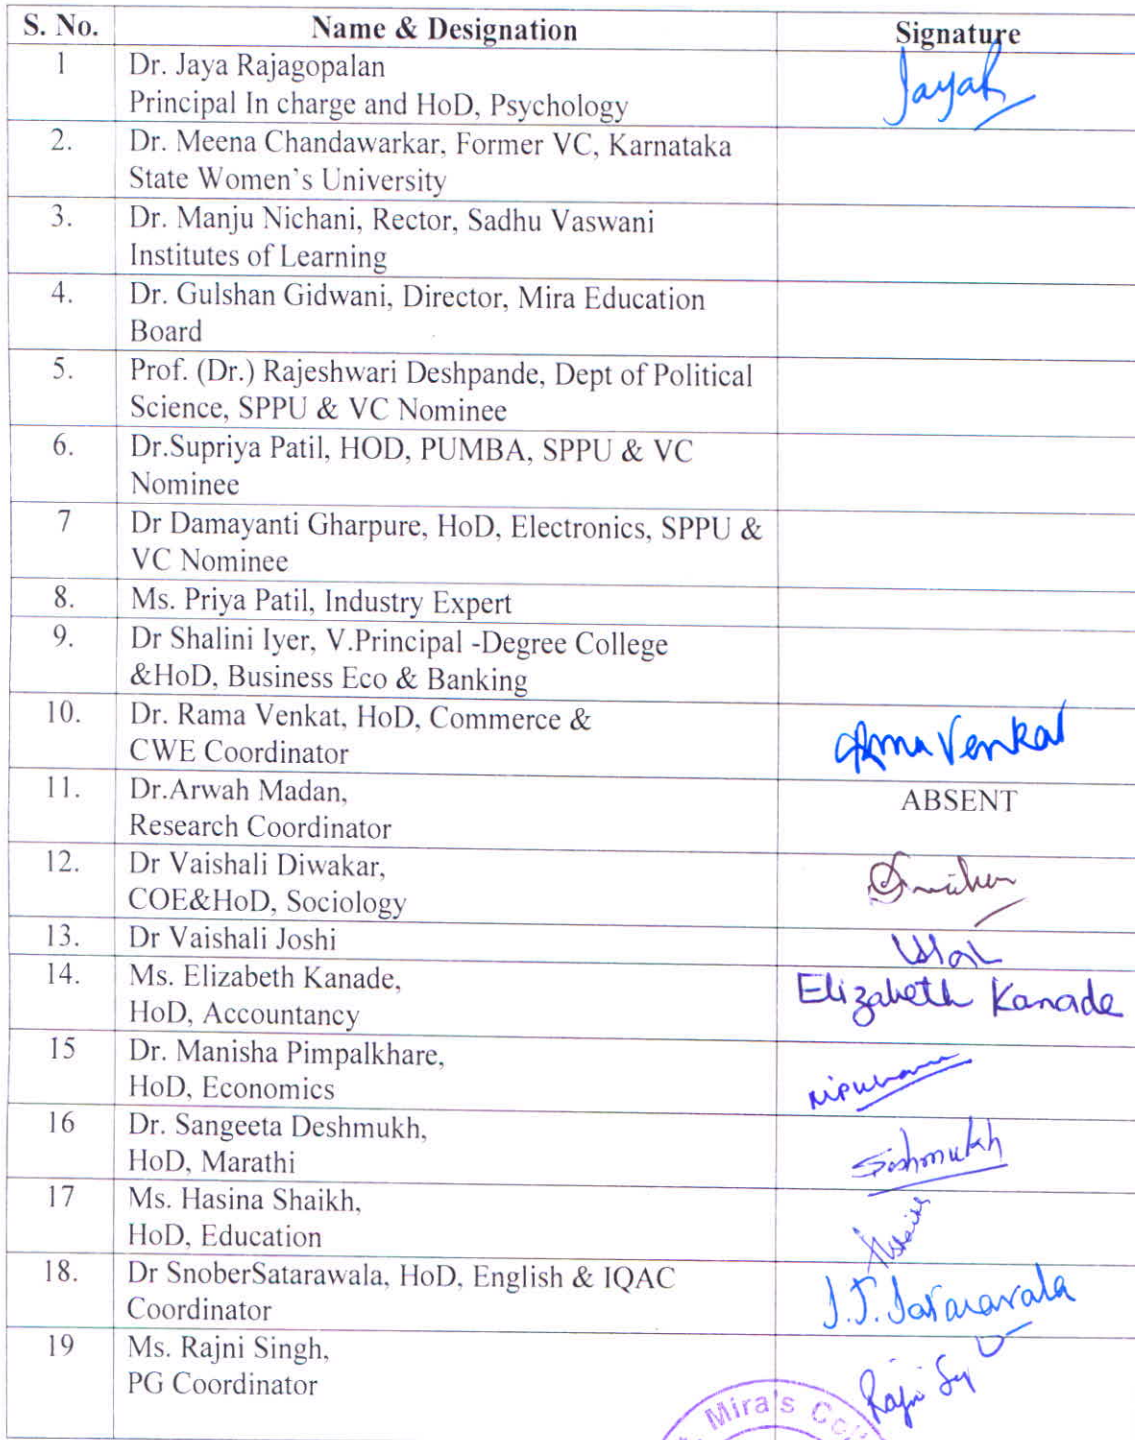 S. No. Name & Designation Signature
1 Dr. Jaya Rajagopalan JayaR
Principal In charge and HoD, Psychology
2. Dr. Meena Chandawarkar, Former VC, Karnataka
State Women's University
3. Dr. Manju Nichani, Rector, Sadhu Vaswani
Institutes of Learning
4. Dr. Gulshan Gidwani, Director, Mira Education
Board
5. Prof. (Dr.) Rajeshwari Deshpande, Dept of Political
Science, SPPU & VC Nominee
6. Dr.Supriya Patil, HOD, PUMBA, SPPU & VC
Nominee
7 Dr Damayanti Gharpure, HoD, Electronics, SPPU &
VC Nominee
8. Ms. Priya Patil, Industry Expert
9. Dr Shalini Iyer, V.Principal -Degree College
&HoD, Business Eco & Banking
10. Dr. Rama Venkat, HoD, Commerce &
CWE Coordinator Rama Venkat
11. Dr.Arwah Madan, ABSENT
Research Coordinator
12. Dr Vaishali Diwakar,
COE&HoD, Sociology
13. Dr Vaishali Joshi
14. Ms. Elizabeth Kanade, Elizabeth Kanade
HoD, Accountancy
15 Dr. Manisha Pimpalkhare,
HoD, Economics
16 Dr. Sangeeta Deshmukh,
HoD, Marathi
17 Ms. Hasina Shaikh,
HoD, Education
18. Dr SnoberSatarawala, HoD, English & IQAC
Coordinator
19 Ms. Rajni Singh,
PG Coordinator
Mira's